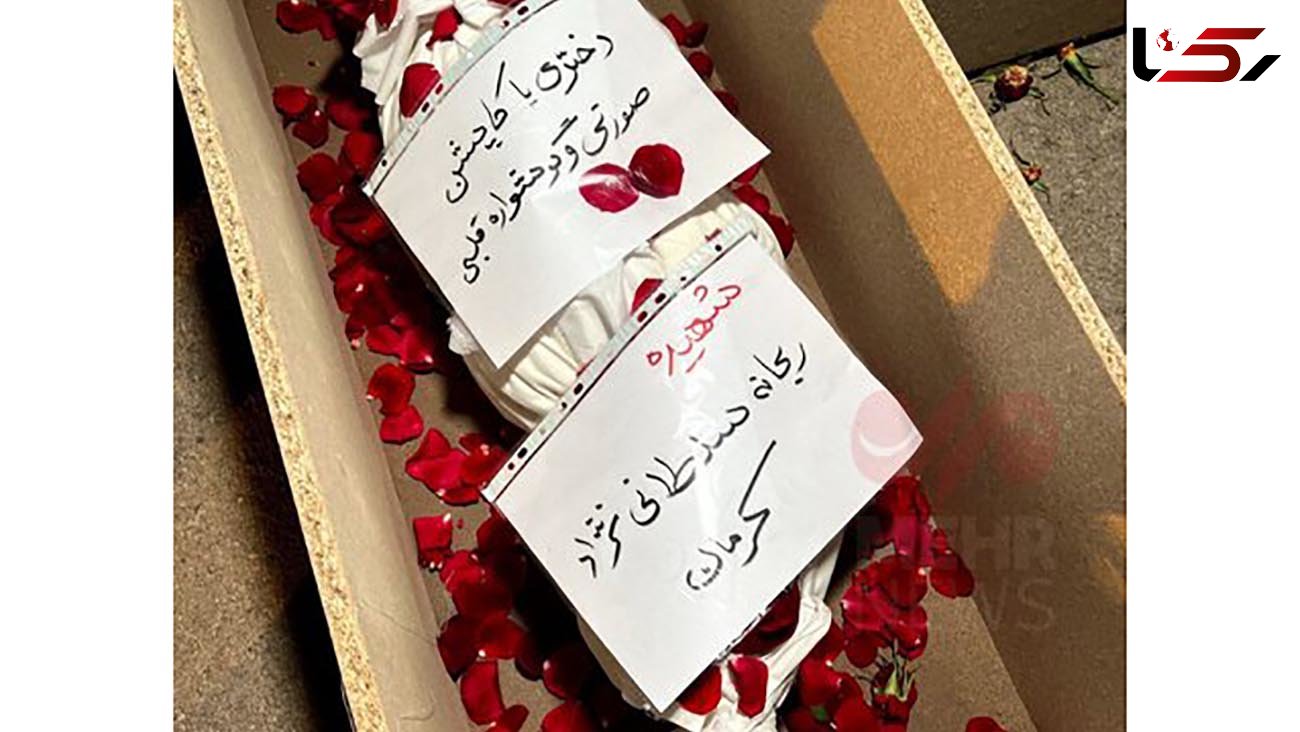 رکنا
دختری با کاپشن
صورتی و گوشواره قلبی
شهیده
ریحانه سلطانی نژاد
کرمان
MEHR
NEWS